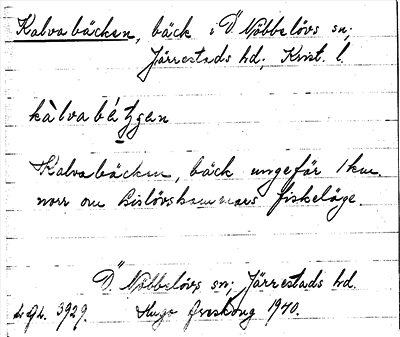 Kalvabäcken, bäck i Ö. Nöbbelövs sn;
Järrestads hd; Krist. l.
kàlvabɛ́tʒgen
Kalvabäcken, bäck ungefär 1 km.
norr om Gislövshammars fiskeläge.
Ö. Nöbbelövs sn; Järrestads hd.
3929. Hugo 1940.